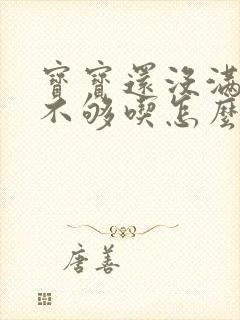 寶寶還沒滿
不够喫怎麼
唐善